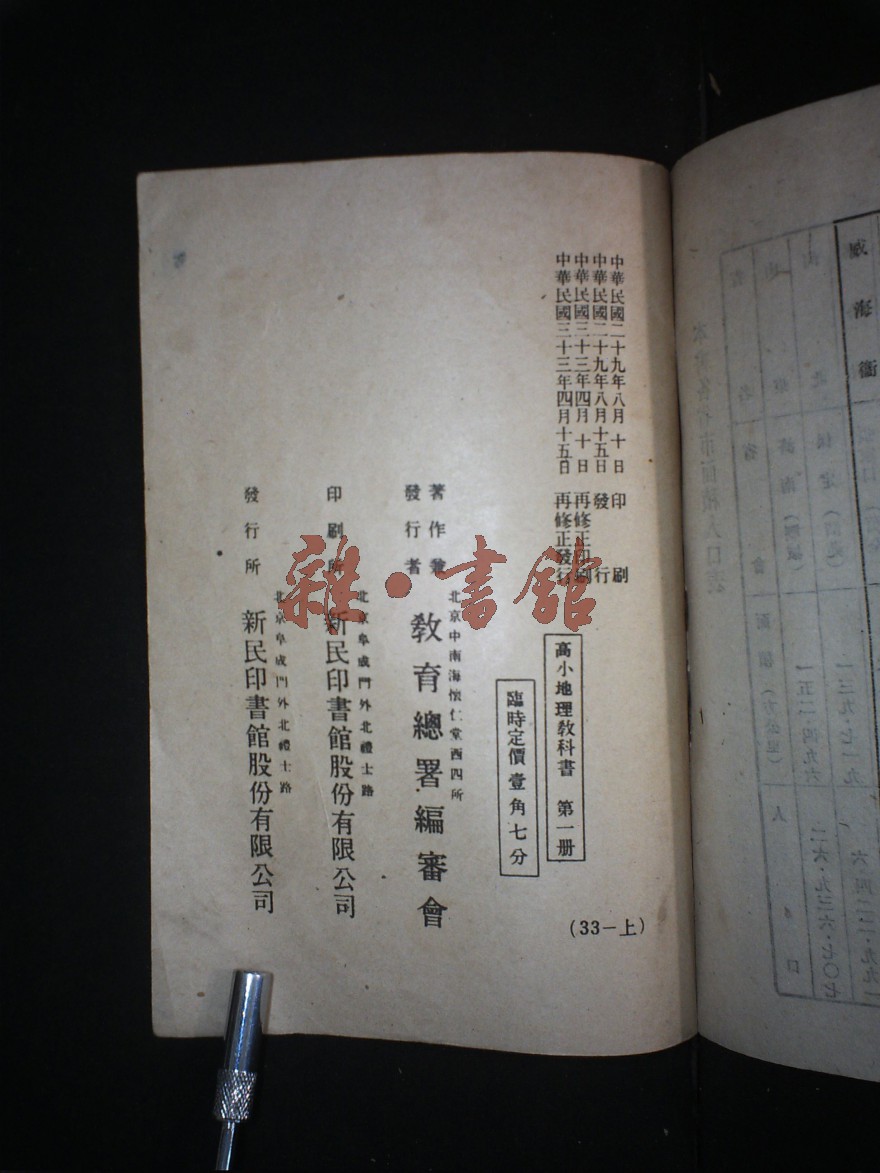 中華民國二十九年八月十日 印刷
中華民國二十九年八月十五日 發行
中華民國三十三年四月十日 再修正印刷
中華民國三十三年四月十五日 再修正發行
高小地理教科書 第一册
臨時定價壹角七分
(33—上)
著作兼
發行者
北京中南海懷仁堂西四所
教育總署編審會
印刷所
北京阜成門外北禮士路
新民印書館股份有限公司
發行所
北京阜成門外北禮士路
新民印書館股份有限公司
雜·書館
威海衞